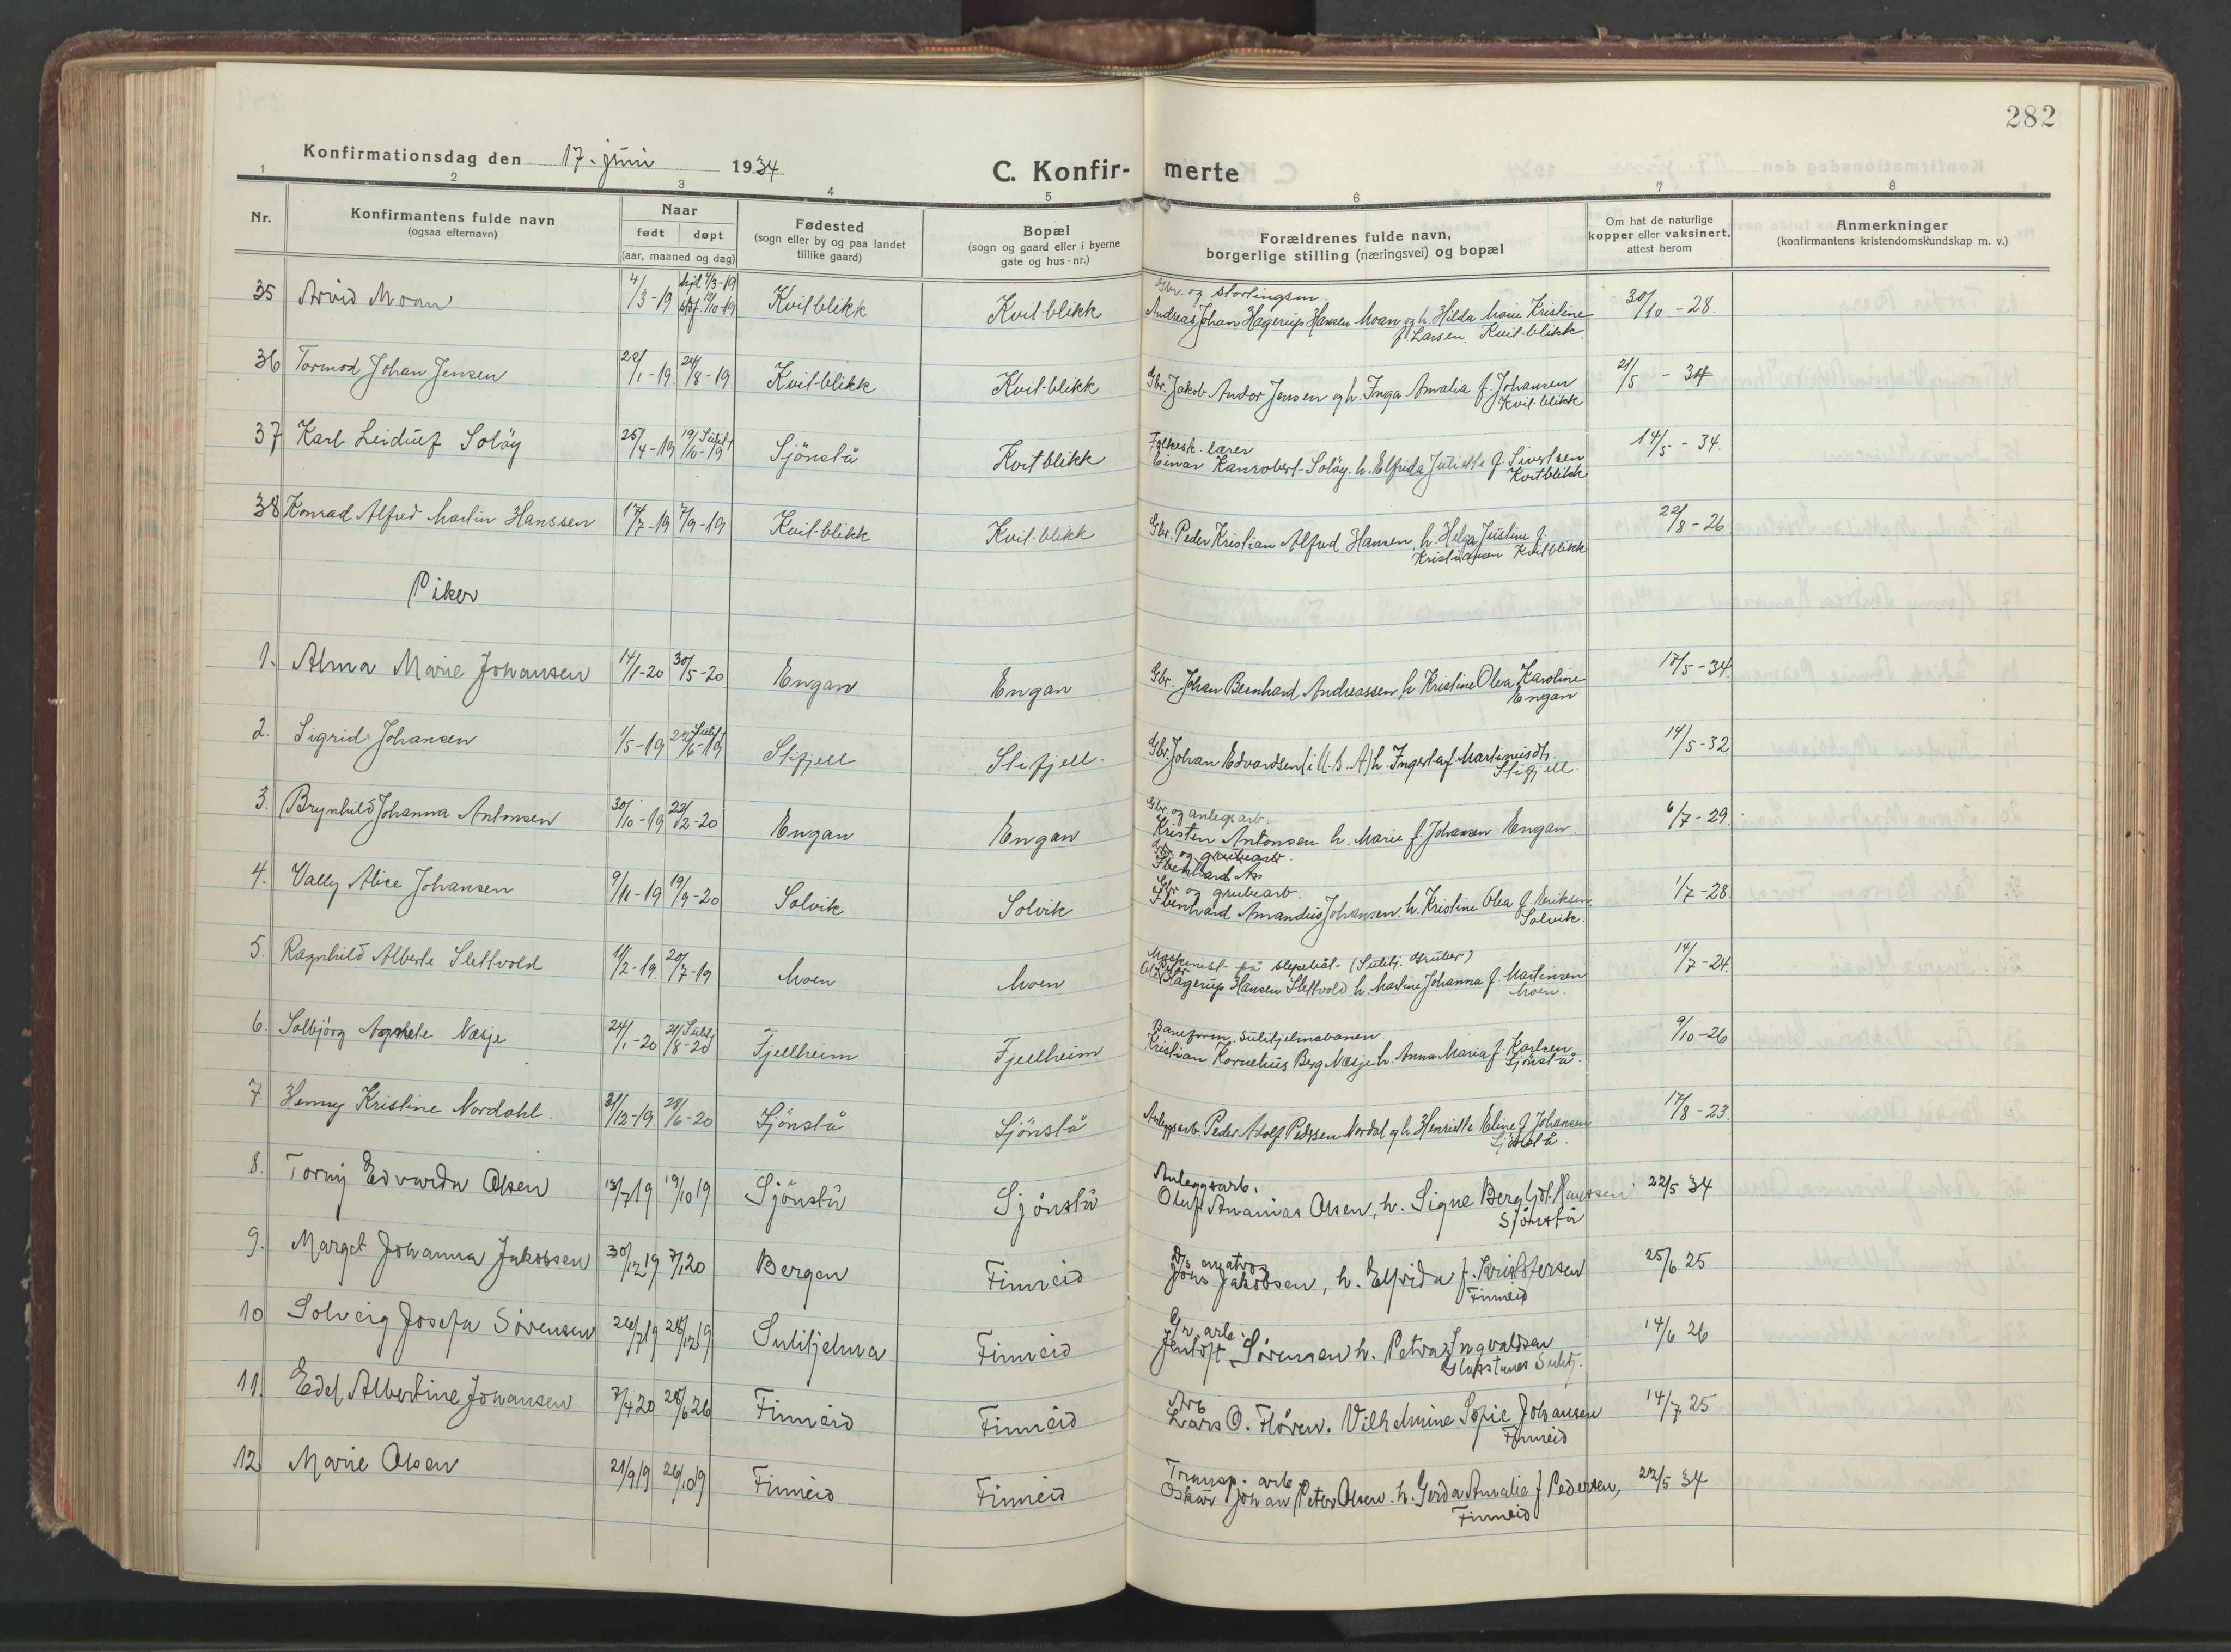 282
Konfirmationsdag den 17. juni 1934
C. Konfir- merte
1 2 3 4 5 6 7 8
Nr.
Konfirmantens fulde navn
(ogsaa efternavn)
Naar
født døpt
(aar, maaned og dag)
Fødested
(sogn eller by og paa landet
tillike gaard)
Bopæl
(sogn og gaard eller i byerne
gate og hus-nr.)
Forældrenes fulde navn,
borgerlige stilling (næringsvei) og bopæl
Om hat de naturlige
kopper eller vaksinert,
attest herom
Anmerkninger
(konfirmantens kristendomskundskap m. v.)
Gbr. og stortingsm.
35 Arvid Moan 4/3-19 4/3-19 Kvitblikk Kvit-blikk Andreas Johan Hagerup Hansen Moan og h. Hilda Marie Kristine 30/10-28.
f. Larsen. Kvit-blikk.
36 Tormod Johan Jensen 22/1-19 24/8-19 Kvit-blikk Kvit-blikk Gbr. Jakob Andor Jensen og h. Inga Amalia f. Johansen 21/5-34
Kvit-blikk
Folkesk. lærer
37 Karl Leidulf Soløy 25/4-19 19/6-19 Sulitj. Sjönstå Kvitblikk Einar Kanrobert Soløy. h. Elfrida Juliette f. Sivertsen 14/5-34.
Kvitblikk
38 Konrad Alfred Martin Hanssen 17/7-19 7/9-19 Kvit-blikk Kvit-blikk Gbr. Peder Kristian Alfred Hansen, h. Helga Justine f. 22/8-26
Kristiansen Kvitblikk
Piker
1. Alma Marie Johansen 14/1-20 30/5-20 Engan Engan Gbr. Johan Bernhard Andreassen, h. Kristine Olea Karoline 18/5-34.
Engan
2. Sigrid Johansen 1/5-19 22/6-19 Sulitj. Slifjell Slifjell. Gbr. Johan Edvardsen (i U.S.A) h. Ingerta f. Martinusdtr. 14/5-32
Slifjell.
Gbr. og anlegsarb.
3. Brynhild Johanna Antonsen 30/10-19 22/2-20 Engan Engan Kristen Antonsen h. Marie f. Johansen Engan. 6/7-29.
Gbr og grubearb.
Ibenhard
Gbr og grubearb.
4. Vally Alice Johansen 9/11-19 19/9-20 Solvik Solvik Ibenhard Amandus Johansen. h. Kristine Olea f. Eriksen. 1/7-28.
Solvik.
Maskinist på slepebåt (Sulitj. Gruber)
5. Ragnhild Alberte Slettvold 11/2-19. 20/7-19 Moen Moen Ole Peder Hagerup Hansen Slettvold h. Martine Johanna f. Martinsen 14/7-24.
Moen.
Baneform. Sulitjelmabanen
6. Solbjörg Agnete Næsje 24/1-20 21/8-20 Sulitj. Fjellheim Fjellheim Kristian Kornelius Berg Næsje h. Anna Maria f. Karlsen 9/10-26
Sjönstå.
7. Henny Kristine Nordahl. 31/12-19. 28/6-20 Sjönstå Sjönstå Anlegsarb. Peder Adolf Pedersen Nordal og h. Henriette Eline f. Johansen 17/8-23
Sjönstå.
Anleggsarb.
8. Torny Edvarda Olsen 13/7 19 19/10 19 Sjönstå Sjönstå Oluf Ananias Olsen, h. Signe Bergljot Hanssen 22/5 34
Sjönstå
9. Marget Johanna Jakobsen 30/12 19 7/1 20 Bergen Finneid Jons Jakobsen, h. Elfrida f. Kristofersen 25/6 25
Finneid
Gr. arb.
10 Solveig Josefa Sörensen 26/7 19 28/12 19 Sulitjelma Finneid Jentoft Sörensen h. Petra Ingvaldsen 14/6 26
Sulitj.
Arb
11. Edel Albertine Johansen 7/4 20 28/6 26 Finneid Finneid Lars O. Flören. Vilhelmine Sofie Johansen 14/7 25
Finneid
Transp. arb.
12 Marie Olsen 21/9 19 26/10 19 Finneid Finneid Oskar Johan Peter Olsen. h. Gerda Amalie f Pedersen, 22/5 34
Finneid